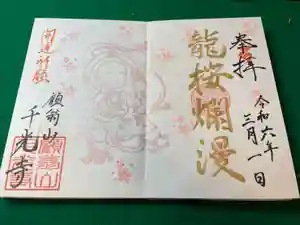 奉拝
令和六年
三月一日
龍桜爛漫
開運祈願
千光寺